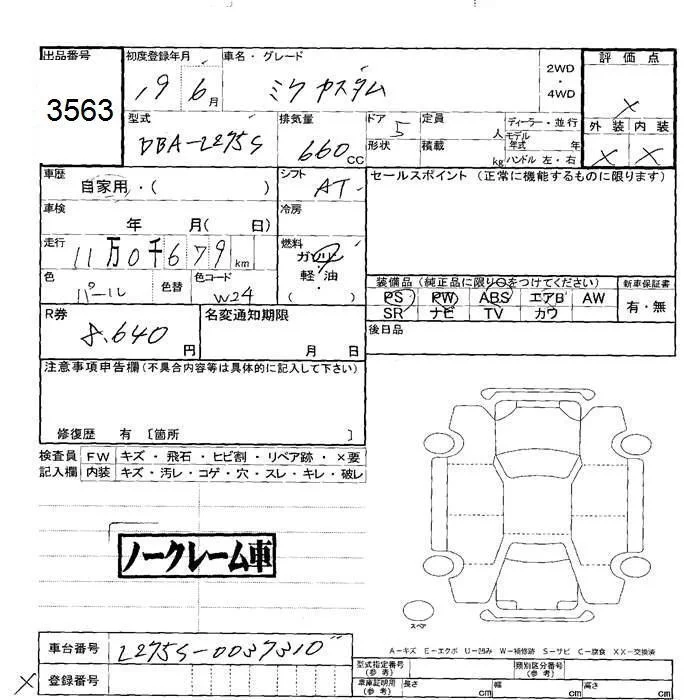 出品番号 初度登録年月 車名・グレード 2WD・4WD 評価点
3563 19 6月 ミラカスタム ×
型式 排気量 ドア 定員 ディーラー・並行 外装 内装
DBA-L275S 660cc 5 人 モデル年式 年 × ×
形状 積載 kg ハンドル 左・右
車歴 シフト セールスポイント (正常に機能するものに限ります)
自家用・( ) AT
車検 年 月( 日) 冷房
走行 11万0千679km 燃料 ガソリン
軽・油
( )
色 パール 色替 色コード W24
装備品 (純正品に限り○をつけてください) 新車保証書
PS PW ABS エアB AW 有・無
SR ナビ TV カワ
R券 名変通知期限 後日品
8.640円 月 日
注意事項申告欄(不具合内容等は具体的に記入して下さい)
修復歴 有 〔箇所 〕
検査員 FW キズ・飛石・ヒビ割・リペア跡・×要
記入欄 内装 キズ・汚レ・コゲ・穴・スレ・キレ・破レ
ノークレーム車
スペア
A-キズ E-エクボ U-凹み W-補修跡 S-サビ C-腐食 XX-交換済
車台番号 L275S-0037310
型式指定番号(参考) 類別区分番号(参考)
× 登録番号
車庫証明用(参考) 長さ cm 幅 cm 高さ cm